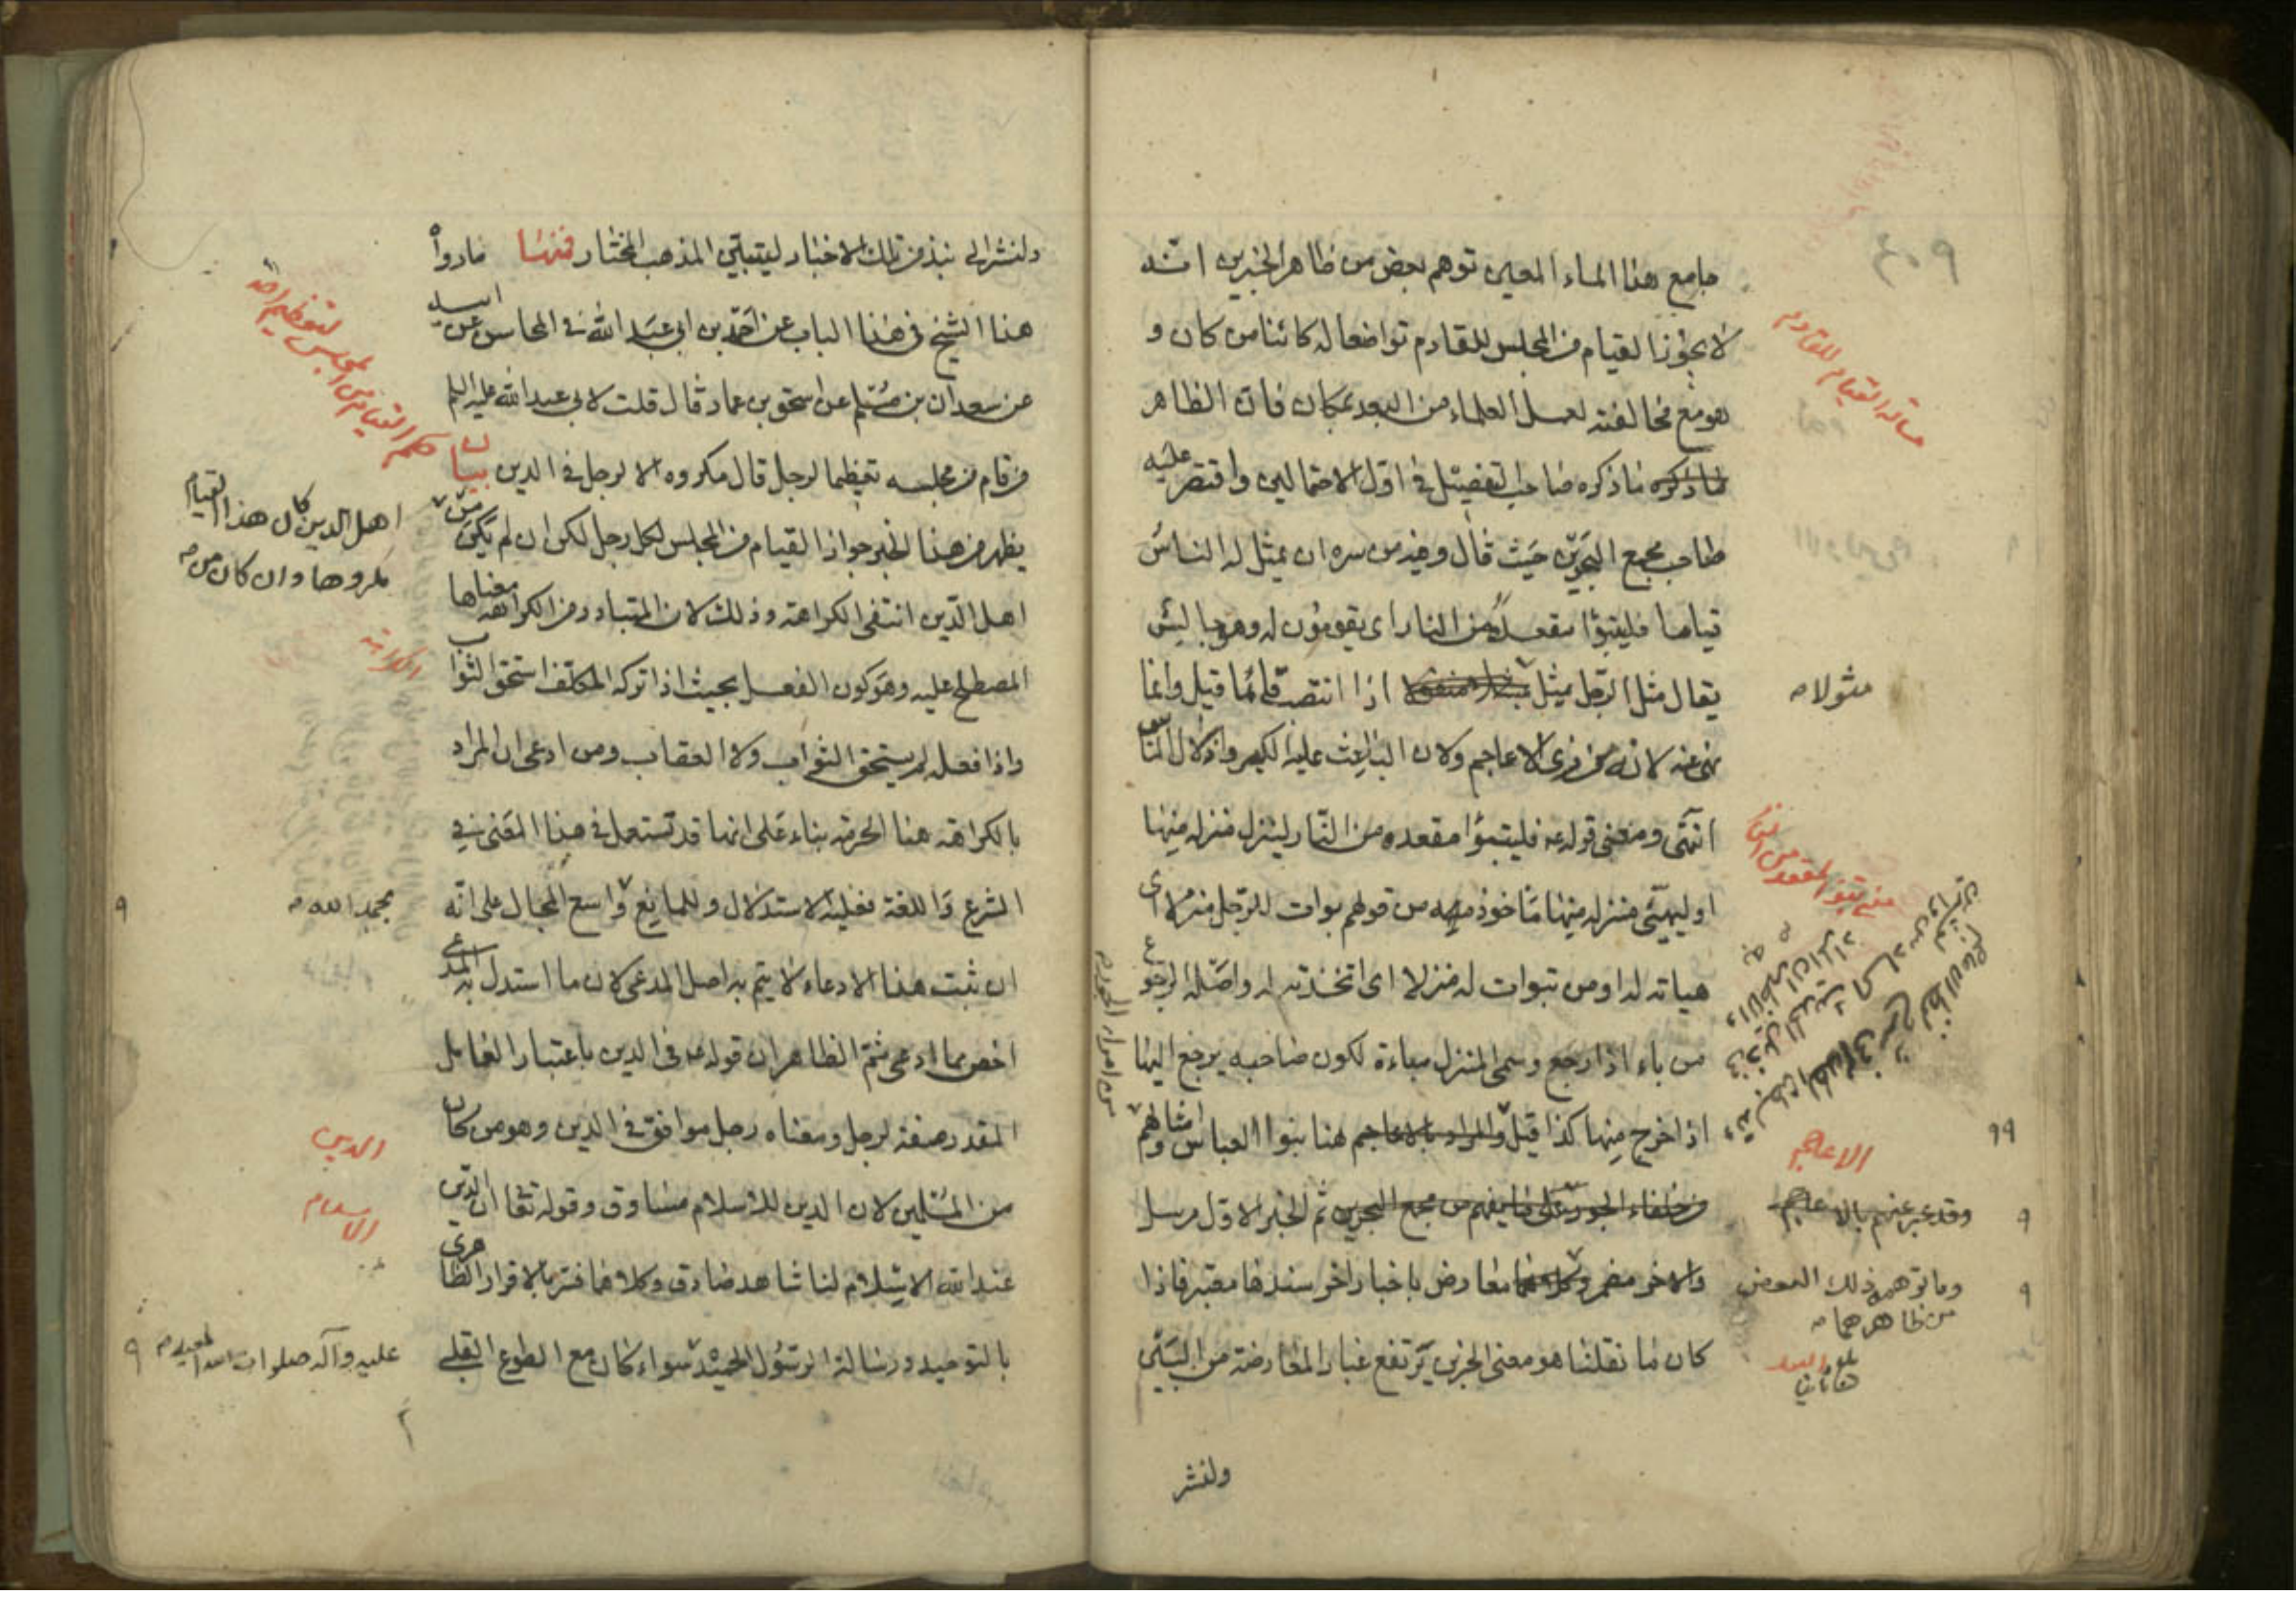 ٤٠٩
جامع هذا الماء المعين توهم بعض من ظاهر الخبرين انه
لا يجوز القيام من المجلس للقادم تواضعا له كائنا من كان و
هو مع مخالفته لعمل العلماء من البعد بمكان فان الظاهر
ما ذكره صاحب التفصيل في اول الاحتمالين واقتصر عليه
صاحب مجمع البحرين حيث قال وفيه من سره ان يمثل له الناس
قياما فليتبوأ مقعده من النار اى يقومون له وهو جالس
يقال مثل الرجل يمثل اذا انتصب قائما قيل وانما
نهى عنه لانه من زى الاعاجم ولان الباعث عليه الكبر واذلال الناس
انتهى ومعنى قوله ع فليتبوأ مقعده من النار لينزل منزله منها
او ليهيئ منزله منها مأخوذ من قولهم بوات للرجل منزلا اى
هياته له او من تبوات له منزلا اى اتخذته له واصله الرجوع
من باء اذا رجع وسمى المنزل مباءة لكون صاحبه يرجع اليها
اذا خرج منها كذا قيل والمراد بالاعاجم هنا بنوا العباس وامثالهم
من خلفاء الجور على ما يفهم من مجمع البحرين ثم الخبر الاول مرسل
والاخر مضمر وكلاهما معارض باخبار اخر سندها معتبر فاذا
كان ما نقلنا هو معنى الخبرين يرتفع غبار المعارضة من البين
ولنشر
مسألة القيام للقادم
مثولا م
معنى تبوّأ المقعد من النار
الاعاجم
وقد عبر عنهم بالاعاجم
وما توهمه ذلك البعض
من ظاهرهما م
ولنشر الى نبذ من تلك الاخبار ليتبين المذهب المختار فمنها ما رواه
هذا الشيخ في هذا الباب عن احمد بن ابى عبد الله في المحاسن عن ابيه
عن سعدان بن مسلم عن اسحق بن عمار قال قلت لابي عبد الله عليه السلم
من قام من مجلسه تعظيما لرجل قال مكروه الا لرجل في الدين بيان
يظهر من هذا الخبر جواز القيام من المجلس لكل رجل لكن ان لم يكن من
اهل الدين انتفى الكراهة وذلك لان المتبادر من الكراهة معناها
المصطلح عليه وهو كون الفعل بحيث اذا تركه المكلف استحق الثواب
واذا فعله لم يستحق الثواب ولا العقاب ومن ادعى ان المراد
بالكراهة هنا الحرمة بناء على انها قد تستعمل في هذا المعنى في
الشرع واللغة فعليه الاستدلال وللمانع واسع المجال على انه
ان ثبت هذا الادعاء لا يتم به اصل المدعى لان ما استدل به المدعى
اخص مما ادعى ثم الظاهر ان قوله ع في الدين باعتبار العامل
المقدر صفة لرجل ومعناه رجل موافق في الدين وهو من كان
من المسلمين لان الدين للاسلام مساوق وقوله تعا ان الدين
عند الله الاسلام لنا شاهد صادق وكلاهما فسر بالاقرار الظاهرى
بالتوحيد ورسالة الرسول الحميد سواء كان مع الطوع القلبي
حكم القيام من المجلس لتعظيم احد
اهل الدين كان هذا القيام
مكروها وان كان من م
الكراهة
بحمد الله م
الدين
الاسلام
عليه وآله صلوات الله المجيد م